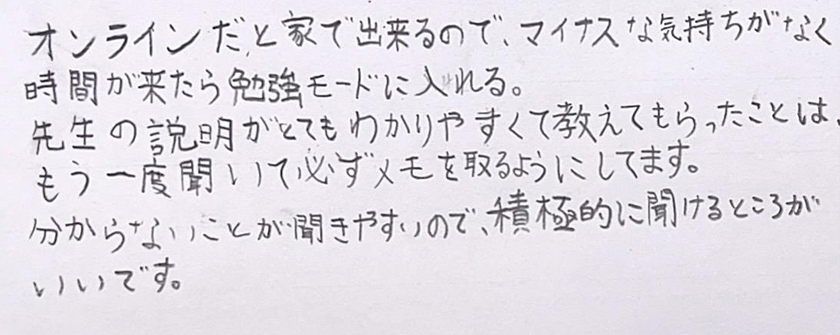 オンラインだと家で出来るので、マイナスな気持ちがなく
時間が来たら勉強モードに入れる。
先生の説明がとてもわかりやすくて教えてもらったことは、
もう一度聞いて必ずメモを取るようにしてます。
分からないことが聞きやすいので、積極的に聞けるところが
いいです。